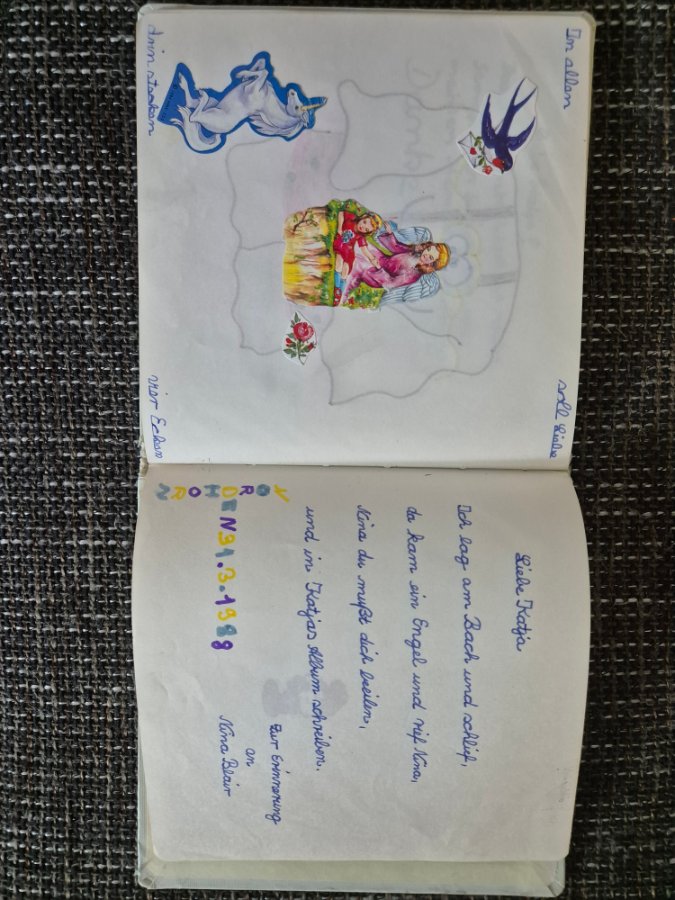 In allen
vier Ecken
soll Liebe
drin stecken
Liebe Katja
Ich lag am Bach und schlief,
da kam ein Engel und rief Nina,
Nina du mußt dich beeilen,
und in Katjas Album schreiben.
Zur Erinnerung
an
Nina Blair
NORDHORN
DEN 31.3.1988